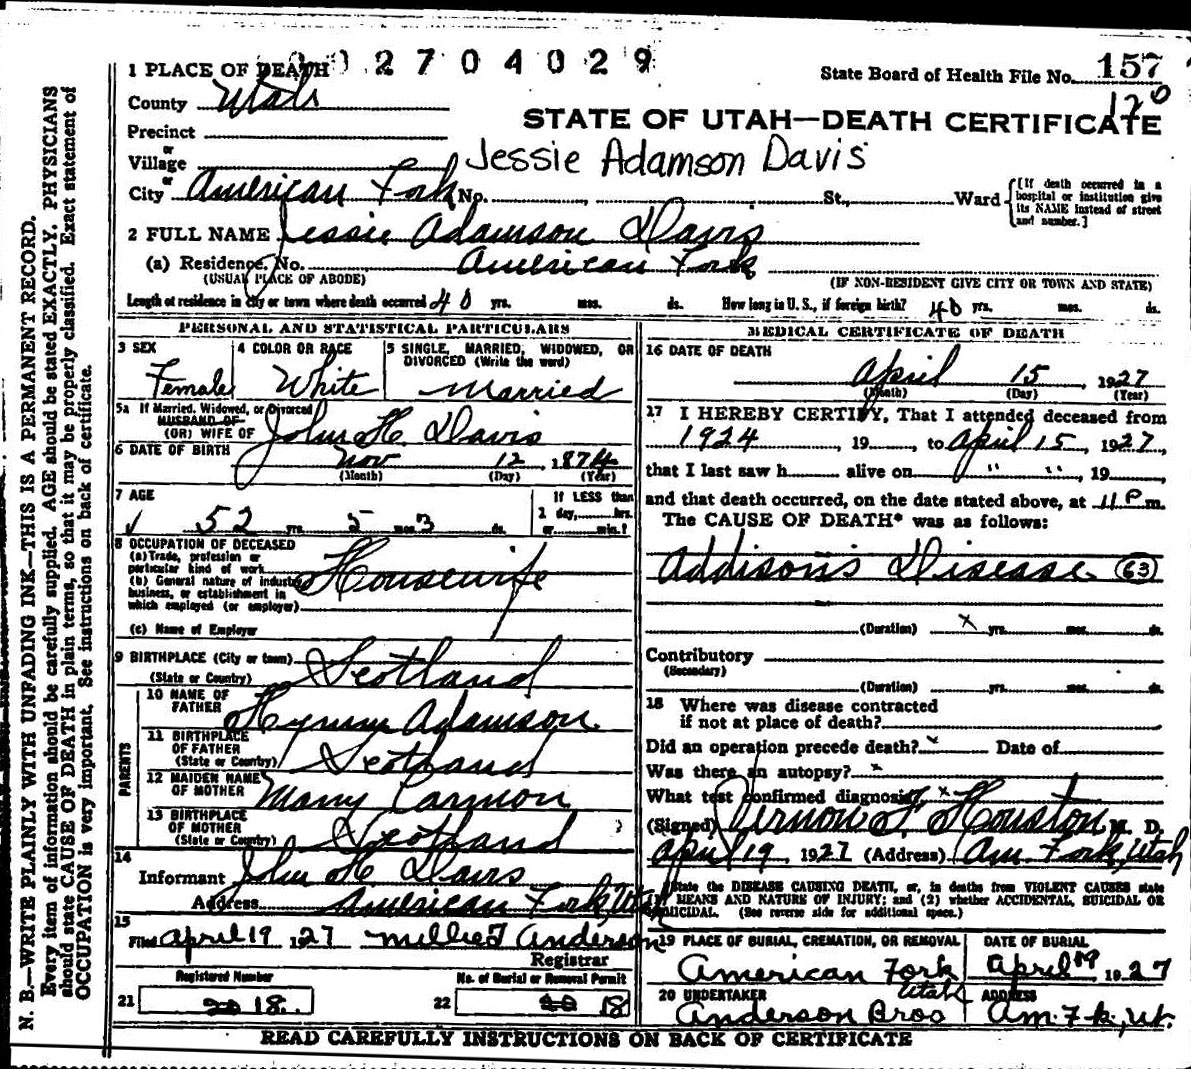 002704029
1 PLACE OF DEATH
State Board of Health File No. 157
120
County Utah
STATE OF UTAH—DEATH CERTIFICATE
Precinct
or
Village
Jessie Adamson Davis
or
City American Fork No. St., Ward
[If death occurred in a hospital or institution give its NAME instead of street and number.]
2 FULL NAME Jessie Adamson Davis
(a) Residence. No. American Fork
(USUAL PLACE OF ABODE) (IF NON-RESIDENT GIVE CITY OR TOWN AND STATE)
Length of residence in city or town where death occurred 40 yrs. mos. ds. How long in U. S., if foreign birth? 40 yrs. mos. ds.
PERSONAL AND STATISTICAL PARTICULARS
3 SEX
Female
4 COLOR OR RACE
White
5 SINGLE, MARRIED, WIDOWED, OR
DIVORCED (Write the word)
Married
5a If Married, Widowed, or Divorced
HUSBAND OF
(OR) WIFE OF John H. Davis
6 DATE OF BIRTH Nov 12, 1874
(Month) (Day) (Year)
7 AGE
52 yrs. 5 mos. 3 ds.
If LESS than
1 day, hrs.
or min.?
8 OCCUPATION OF DECEASED
(a) Trade, profession or
particular kind of work
Housewife
(b) General nature of industry,
business, or establishment in
which employed (or employer)
(c) Name of Employer
9 BIRTHPLACE (City or town)
(State or Country) Scotland
PARENTS
10 NAME OF
FATHER Hyrum Adamson
11 BIRTHPLACE
OF FATHER
(State or Country) Scotland
12 MAIDEN NAME
OF MOTHER Mary Carmon
13 BIRTHPLACE
OF MOTHER
(State or Country) Scotland
14
Informant John H Davis
Address American Fork, Utah
15
Filed April 19 1927 Millie T Anderson
Registrar
Registered Number
21 20 18
No. of Burial or Removal Permit
22 20 18
MEDICAL CERTIFICATE OF DEATH
16 DATE OF DEATH
April 15, 1927
(Month) (Day) (Year)
17 I HEREBY CERTIFY, That I attended deceased from
1924, 19 to April 15, 1927,
that I last saw h alive on " ", 19
and that death occurred, on the date stated above, at 11 P m.
The CAUSE OF DEATH* was as follows:
Addison's Disease (63)
(Duration) x yrs. mos. ds.
Contributory
(Secondary)
(Duration) yrs. mos. ds.
18 Where was disease contracted
if not at place of death?
Did an operation precede death? x Date of
Was there an autopsy? x
What test confirmed diagnosis? x
(Signed) Vernon F. Houston M. D.
April 19, 1927 (Address) Am. Fork, Utah
State the DISEASE CAUSING DEATH, or, in deaths from VIOLENT CAUSES state
MEANS AND NATURE OF INJURY; and (2) whether ACCIDENTAL, SUICIDAL OR
HOMICIDAL. (See reverse side for additional space.)
19 PLACE OF BURIAL, CREMATION, OR REMOVAL
American Fork
Utah
DATE OF BURIAL
April 19 1927
20 UNDERTAKER
Anderson Bros
ADDRESS
Am. Fk., Ut.
READ CAREFULLY INSTRUCTIONS ON BACK OF CERTIFICATE
N. B.—WRITE PLAINLY WITH UNFADING INK—THIS IS A PERMANENT RECORD.
Every item of information should be carefully supplied. AGE should be stated EXACTLY. PHYSICIANS
should state CAUSE OF DEATH in plain terms, so that it may be properly classified. Exact statement of
OCCUPATION is very important. See instructions on back of certificate.